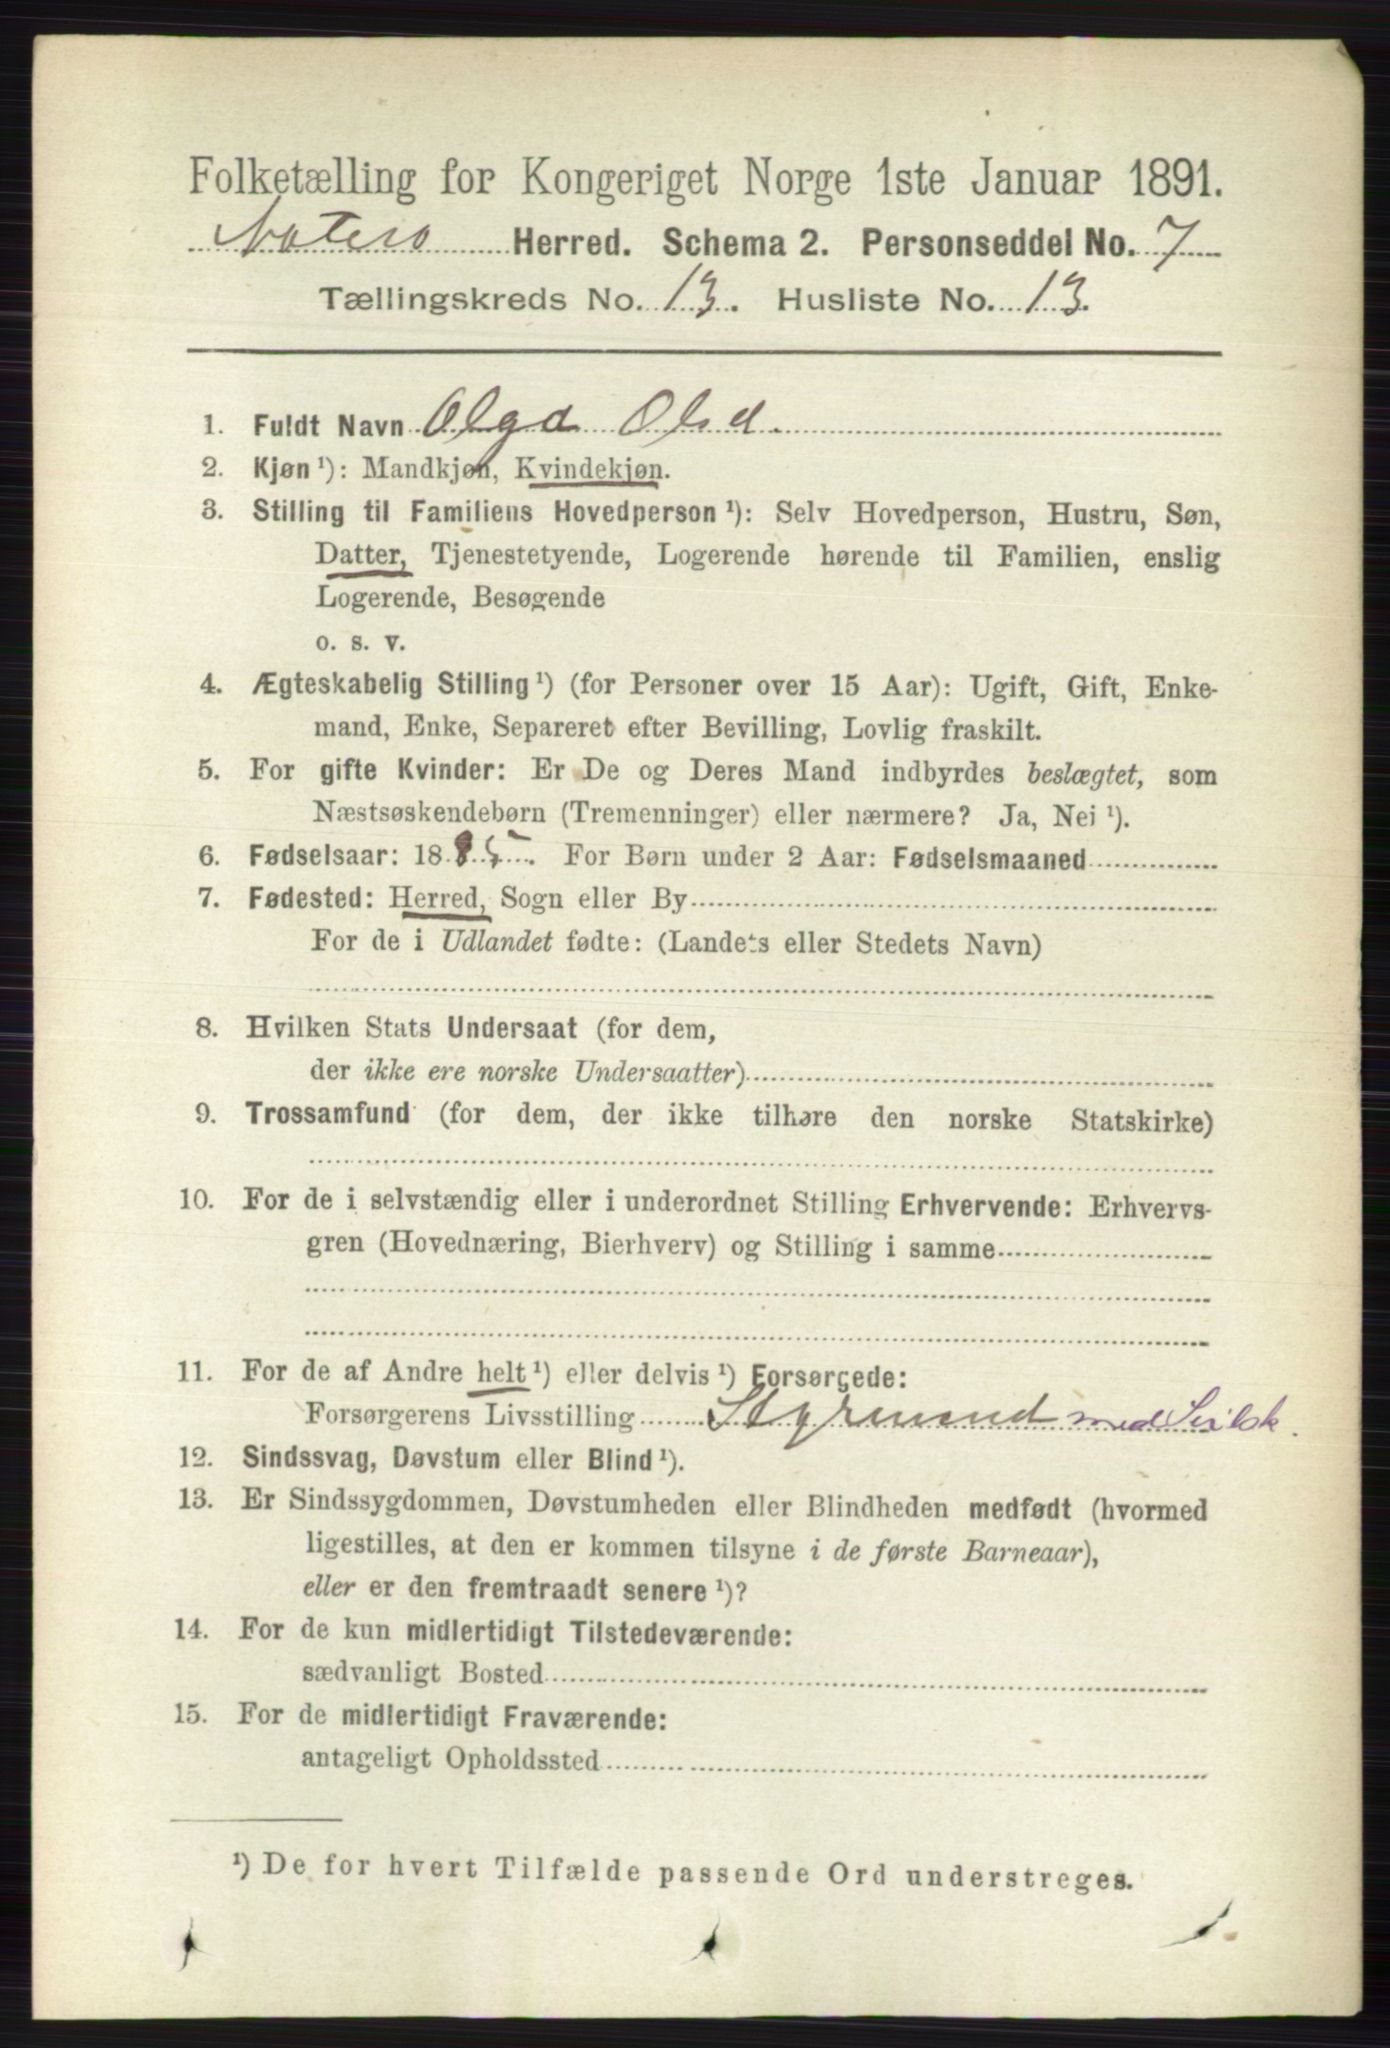 Folketælling for Kongeriget Norge 1ste Januar 1891.
Nøterø Herred. Schema 2. Personseddel No. 7
Tællingskreds No. 13. Husliste No. 13.
1. Fuldt Navn Olga Olsd.
2. Kjøn ¹): Mandkjøn, Kvindekjøn.
3. Stilling til Familiens Hovedperson ¹): Selv Hovedperson, Hustru, Søn,
Datter, Tjenestetyende, Logerende hørende til Familien, enslig
Logerende, Besøgende
o. s. v.
4. Ægteskabelig Stilling ¹) (for Personer over 15 Aar): Ugift, Gift, Enke-
mand, Enke, Separeret efter Bevilling, Lovlig fraskilt.
5. For gifte Kvinder: Er De og Deres Mand indbyrdes beslægtet, som
Næstsøskendebørn (Tremenninger) eller nærmere? Ja, Nei ¹).
6. Fødselsaar: 1885. For Børn under 2 Aar: Fødselsmaaned
7. Fødested: Herred, Sogn eller By
For de i Udlandet fødte: (Landets eller Stedets Navn)
8. Hvilken Stats Undersaat (for dem,
der ikke ere norske Undersaatter)
9. Trossamfund (for dem, der ikke tilhøre den norske Statskirke)
10. For de i selvstændig eller i underordnet Stilling Erhvervende: Erhvervs-
gren (Hovednæring, Bierhverv) og Stilling i samme
11. For de af Andre helt ¹) eller delvis ¹) Forsørgede:
Forsørgerens Livsstilling Styrmand med Seilsk.
12. Sindssvag, Døvstum eller Blind ¹).
13. Er Sindssygdommen, Døvstumheden eller Blindheden medfødt (hvormed
ligestilles, at den er kommen tilsyne i de første Barneaar),
eller er den fremtraadt senere ¹)?
14. For de kun midlertidigt Tilstedeværende:
sædvanligt Bosted
15. For de midlertidigt Fraværende:
antageligt Opholdssted
¹) De for hvert Tilfælde passende Ord understreges.